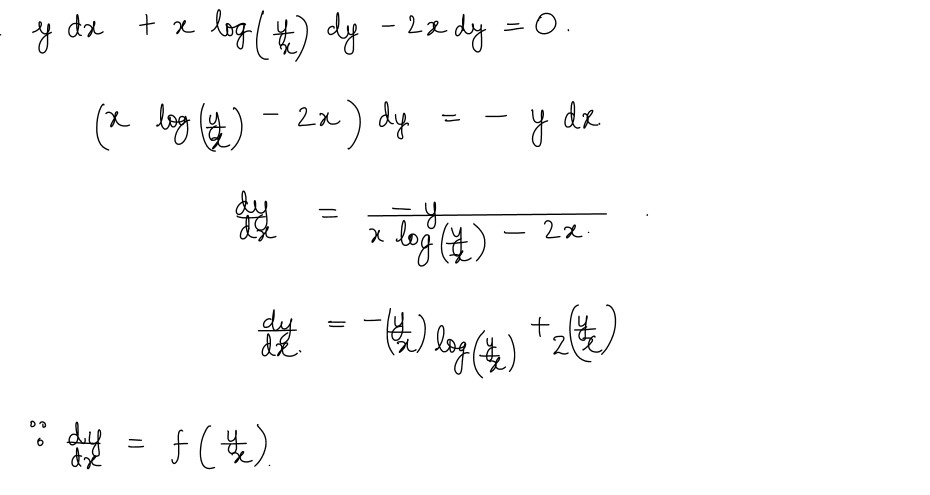 y dx + x log(y/x) dy - 2x dy = 0.
(x log(y/x) - 2x) dy = - y dx
dy/dx = -y / (x log(y/x) - 2x).
dy/dx = -(y/x) log(y/x) + 2(y/x)
∵ dy/dx = f(y/x).